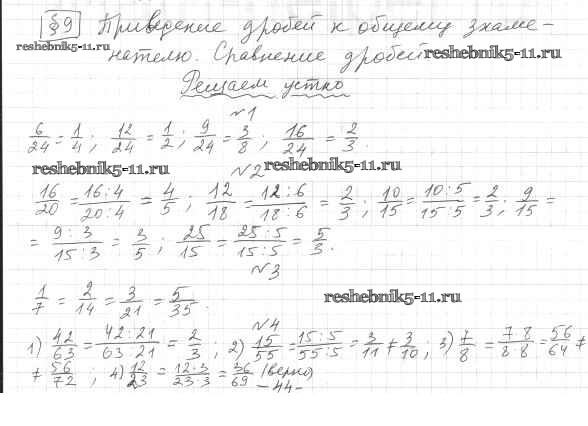 §9 Приведение дробей к общему знаме-
reshebnik5-11.ru
нателю. Сравнение дробей reshebnik5-11.ru
Решаем устно
№1
6/24 = 1/4; 12/24 = 1/2; 9/24 = 3/8; 16/24 = 2/3.
reshebnik5-11.ru №2 reshebnik5-11.ru
16/20 = 16:4/20:4 = 4/5; 12/18 = 12:6/18:6 = 2/3; 10/15 = 10:5/15:5 = 2/3; 9/15 =
= 9:3/15:3 = 3/5; 25/15 = 25:5/15:5 = 5/3.
№3
1/7 = 2/14 = 3/21 = 5/35. reshebnik5-11.ru
№4
1) 42/63 = 42:21/63:21 = 2/3; 2) 15/55 = 15:5/55:5 = 3/11 ≠ 3/10; 3) 7/8 = 7·8/8·8 = 56/64 ≠
≠ 56/72; 4) 12/23 = 12·3/23·3 = 36/69 (верно)
-44-